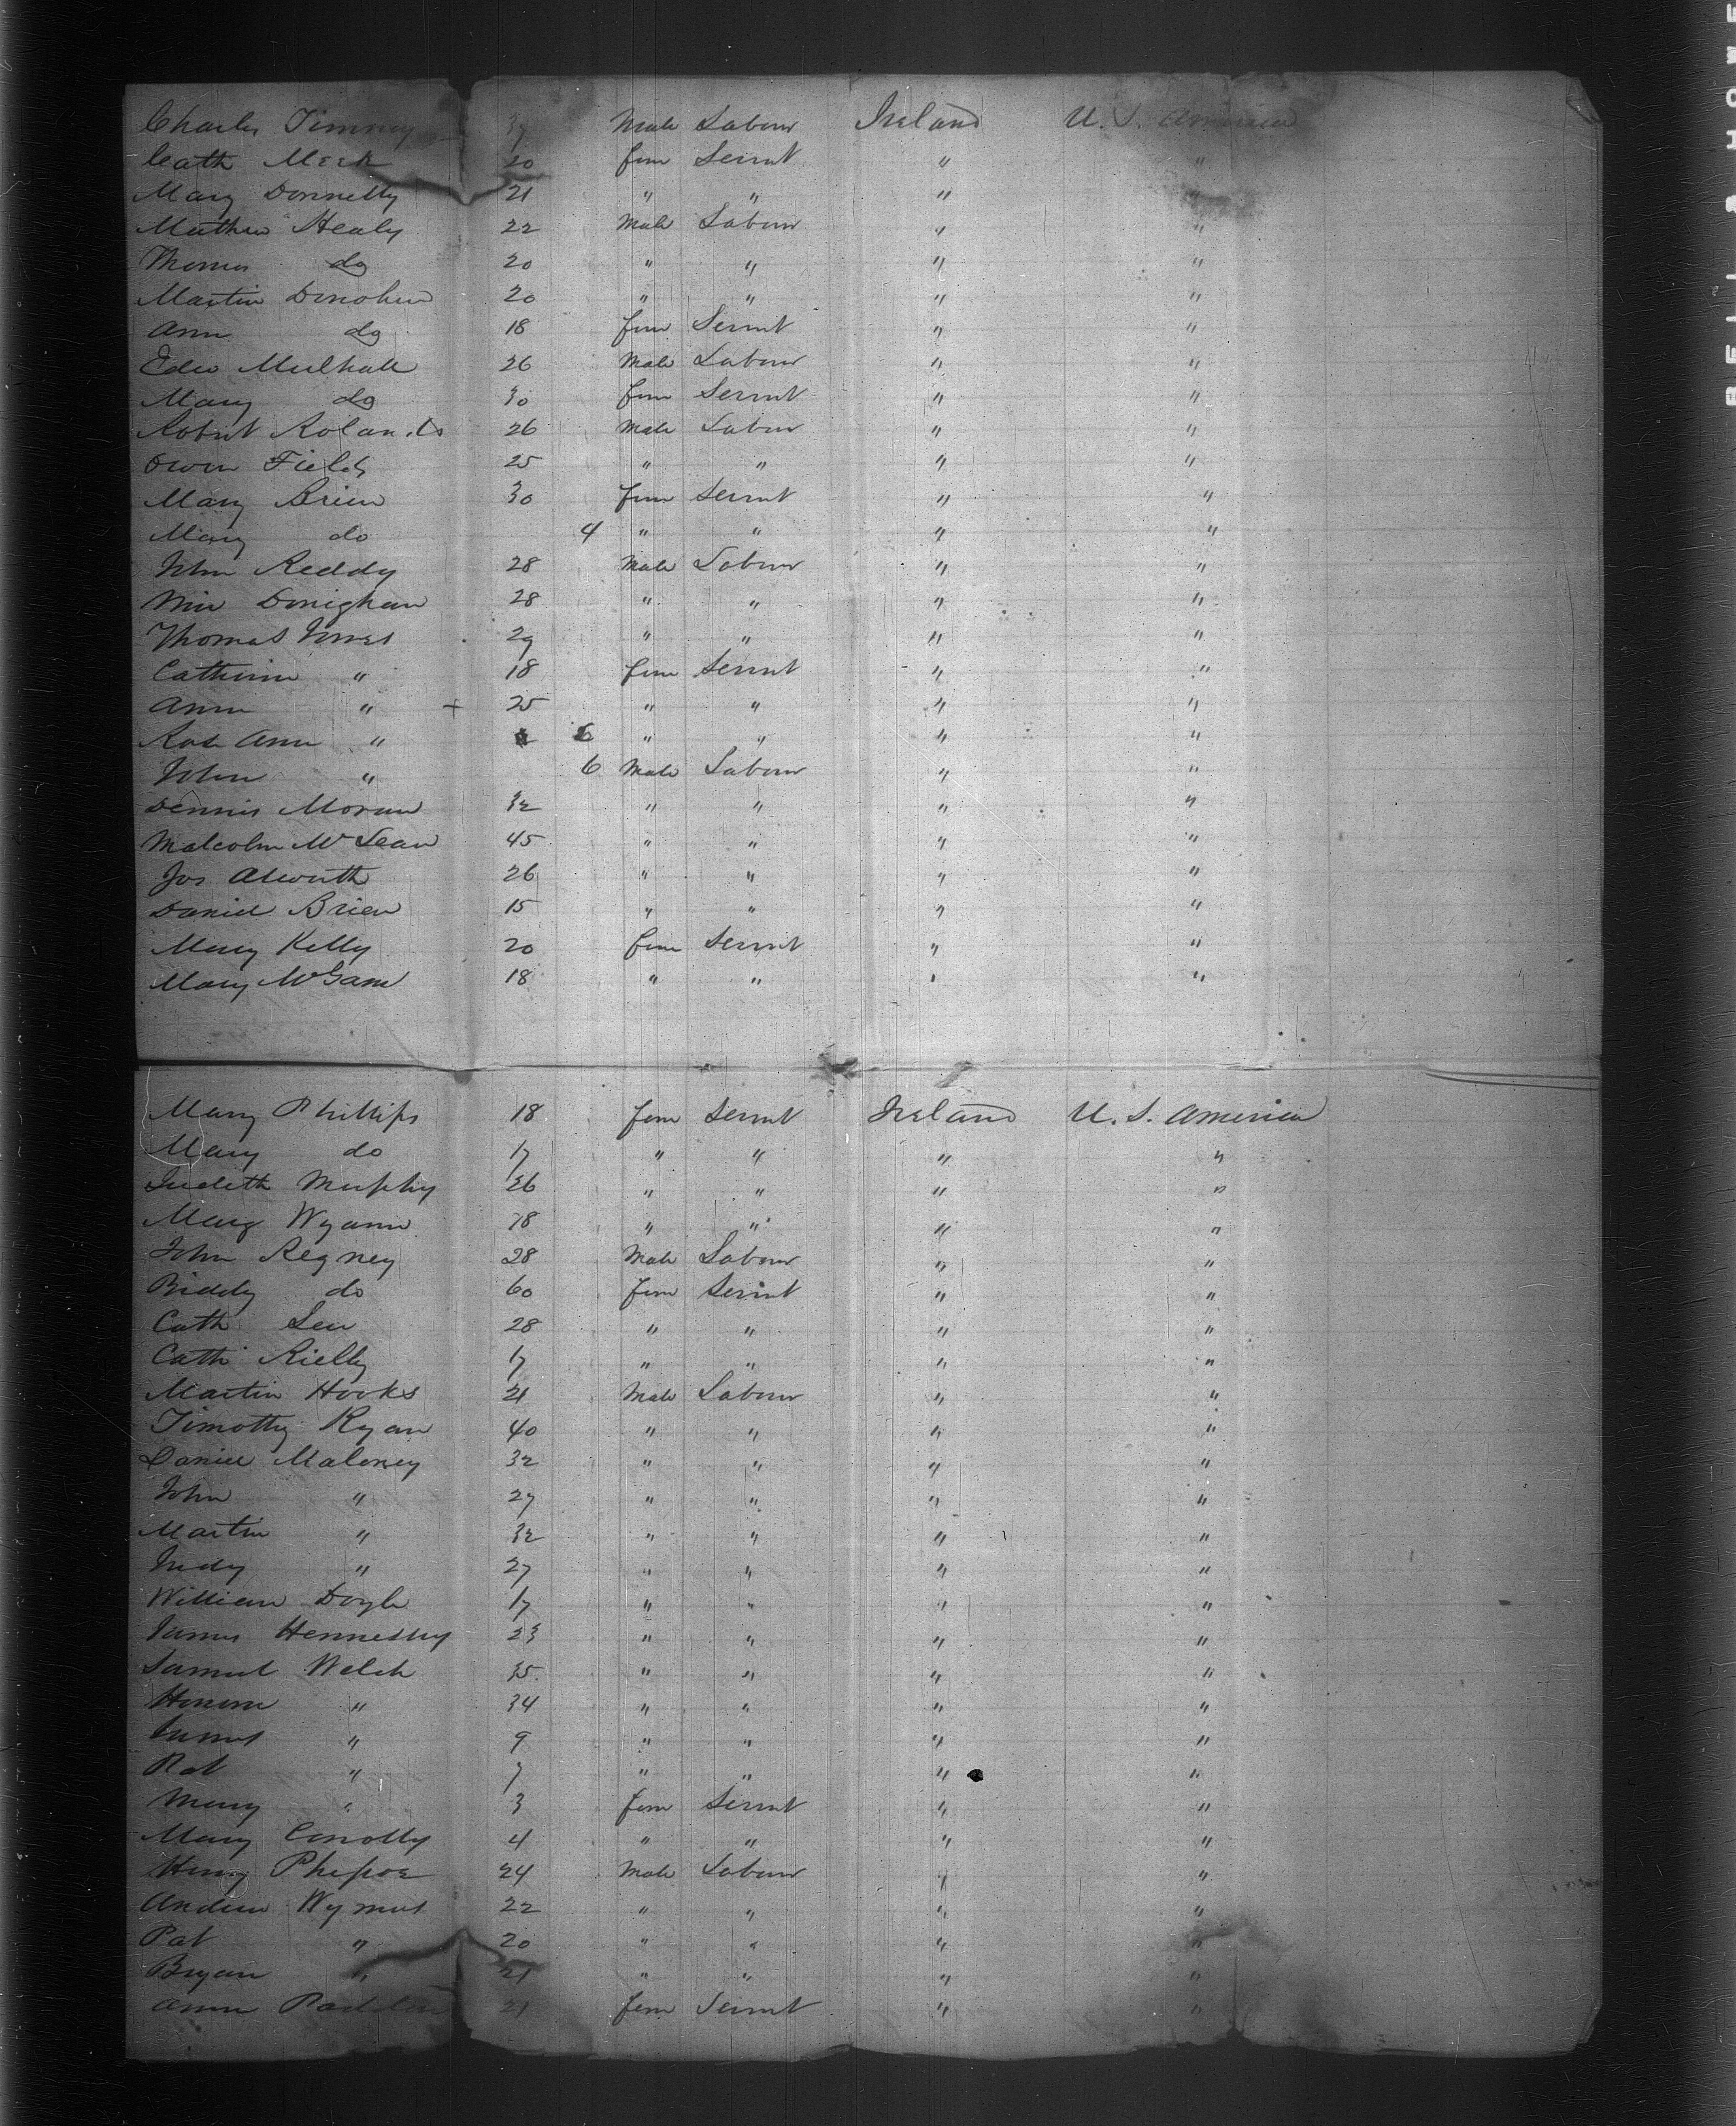 Charles Timmey 37 Male Labour Ireland U. S. America
Cath Meek 20 fem Servnt " "
Mary Donnelly 21 " " " "
Mathew Healy 22 Male Labour " "
Thomas do 20 " " " "
Martin Donohue 20 " " " "
Ann do 18 fem Servnt " "
Edw Mulhall 26 Male Labour " "
Mary do 30 fem Servnt " "
Robert Rolands 26 Male Labour " "
Owen Fields 25 " " " "
Mary Brien 30 fem Servnt " "
Mary do 4 " " " "
John Reddy 28 Male Labour " "
Wm Donighan 28 " " " "
Thomas Jones 27 " " " "
Catherine " 18 fem Servnt " "
Ann " + 25 " " " "
Rose Ann " 6 " " " "
John " 6 Male Labour " "
Dennis Moran 32 " " " "
Malcolm McLean 45 " " " "
Jos Alworth 26 " " " "
Daniel Brien 15 " " " "
Mary Kelly 20 fem Servnt " "
Mary McGann 18 " " " "
Mary Phillips 18 fem Servnt Ireland U. S. America
Mary do 17 " " " "
Judith Murphy 26 " " " "
Marg Wyann 18 " " " "
John Regney 28 Male Labour " "
Biddy do 60 fem Servnt " "
Cath Leu 28 " " " "
Cath Rielly 17 " " " "
Martin Hooks 21 Male Labour " "
Timothy Ryan 40 " " " "
Daniel Maloney 32 " " " "
John " 27 " " " "
Martin " 32 " " " "
Judy " 27 " " " "
William Doyle 17 " " " "
James Hennessy 23 " " " "
Samuel Welch 35 " " " "
Honora " 34 " " " "
James " 9 " " " "
Pat " 7 " " " "
Mary " 3 fem Servnt " "
Mary Conolly 4 " " " "
Henry Phepoe 24 Male Labour " "
Andrew Wymes 22 " " " "
Pat " 20 " " " "
Bryan " 21 " " " "
Ann 21 fem Servnt " "